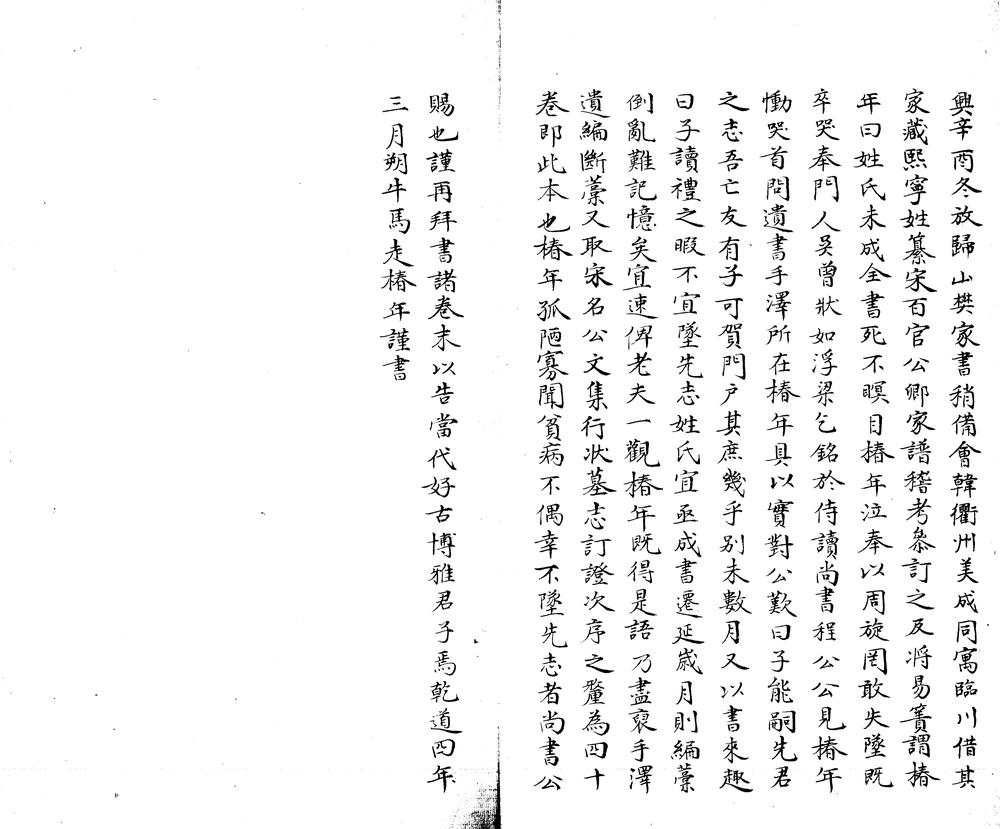 興辛酉冬放歸山樊家書稍備會韓衢州美成同寓臨川借其
家藏熙寧姓纂宋百官公卿家譜稽考叅訂之及將易簀謂椿
年曰姓氏未成全書死不瞑目椿年泣奉以周旋罔敢失墜既
卒哭奉門人吳曾狀如浮梁乞銘於侍讀尚書程公公見椿年
慟哭首問遺書手澤所在椿年具以實對公歎曰子能嗣先君
之志吾亡友有子可賀門户其庶幾乎别未數月又以書來趣
曰子讀禮之暇不宜墜先志姓氏宜亟成書遷延歲月則編藁
倒亂難記憶矣宜速俾老夫一觀椿年既得是語乃盡裒手澤
遺編斷藁又取宋名公文集行狀墓志訂證次序之釐為四十
卷即此本也椿年孤陋寡聞貧病不偶幸不墜先志者尚書公
賜也謹再拜書諸卷末以告當代好古博雅君子焉乾道四年
三月朔牛馬走椿年謹書